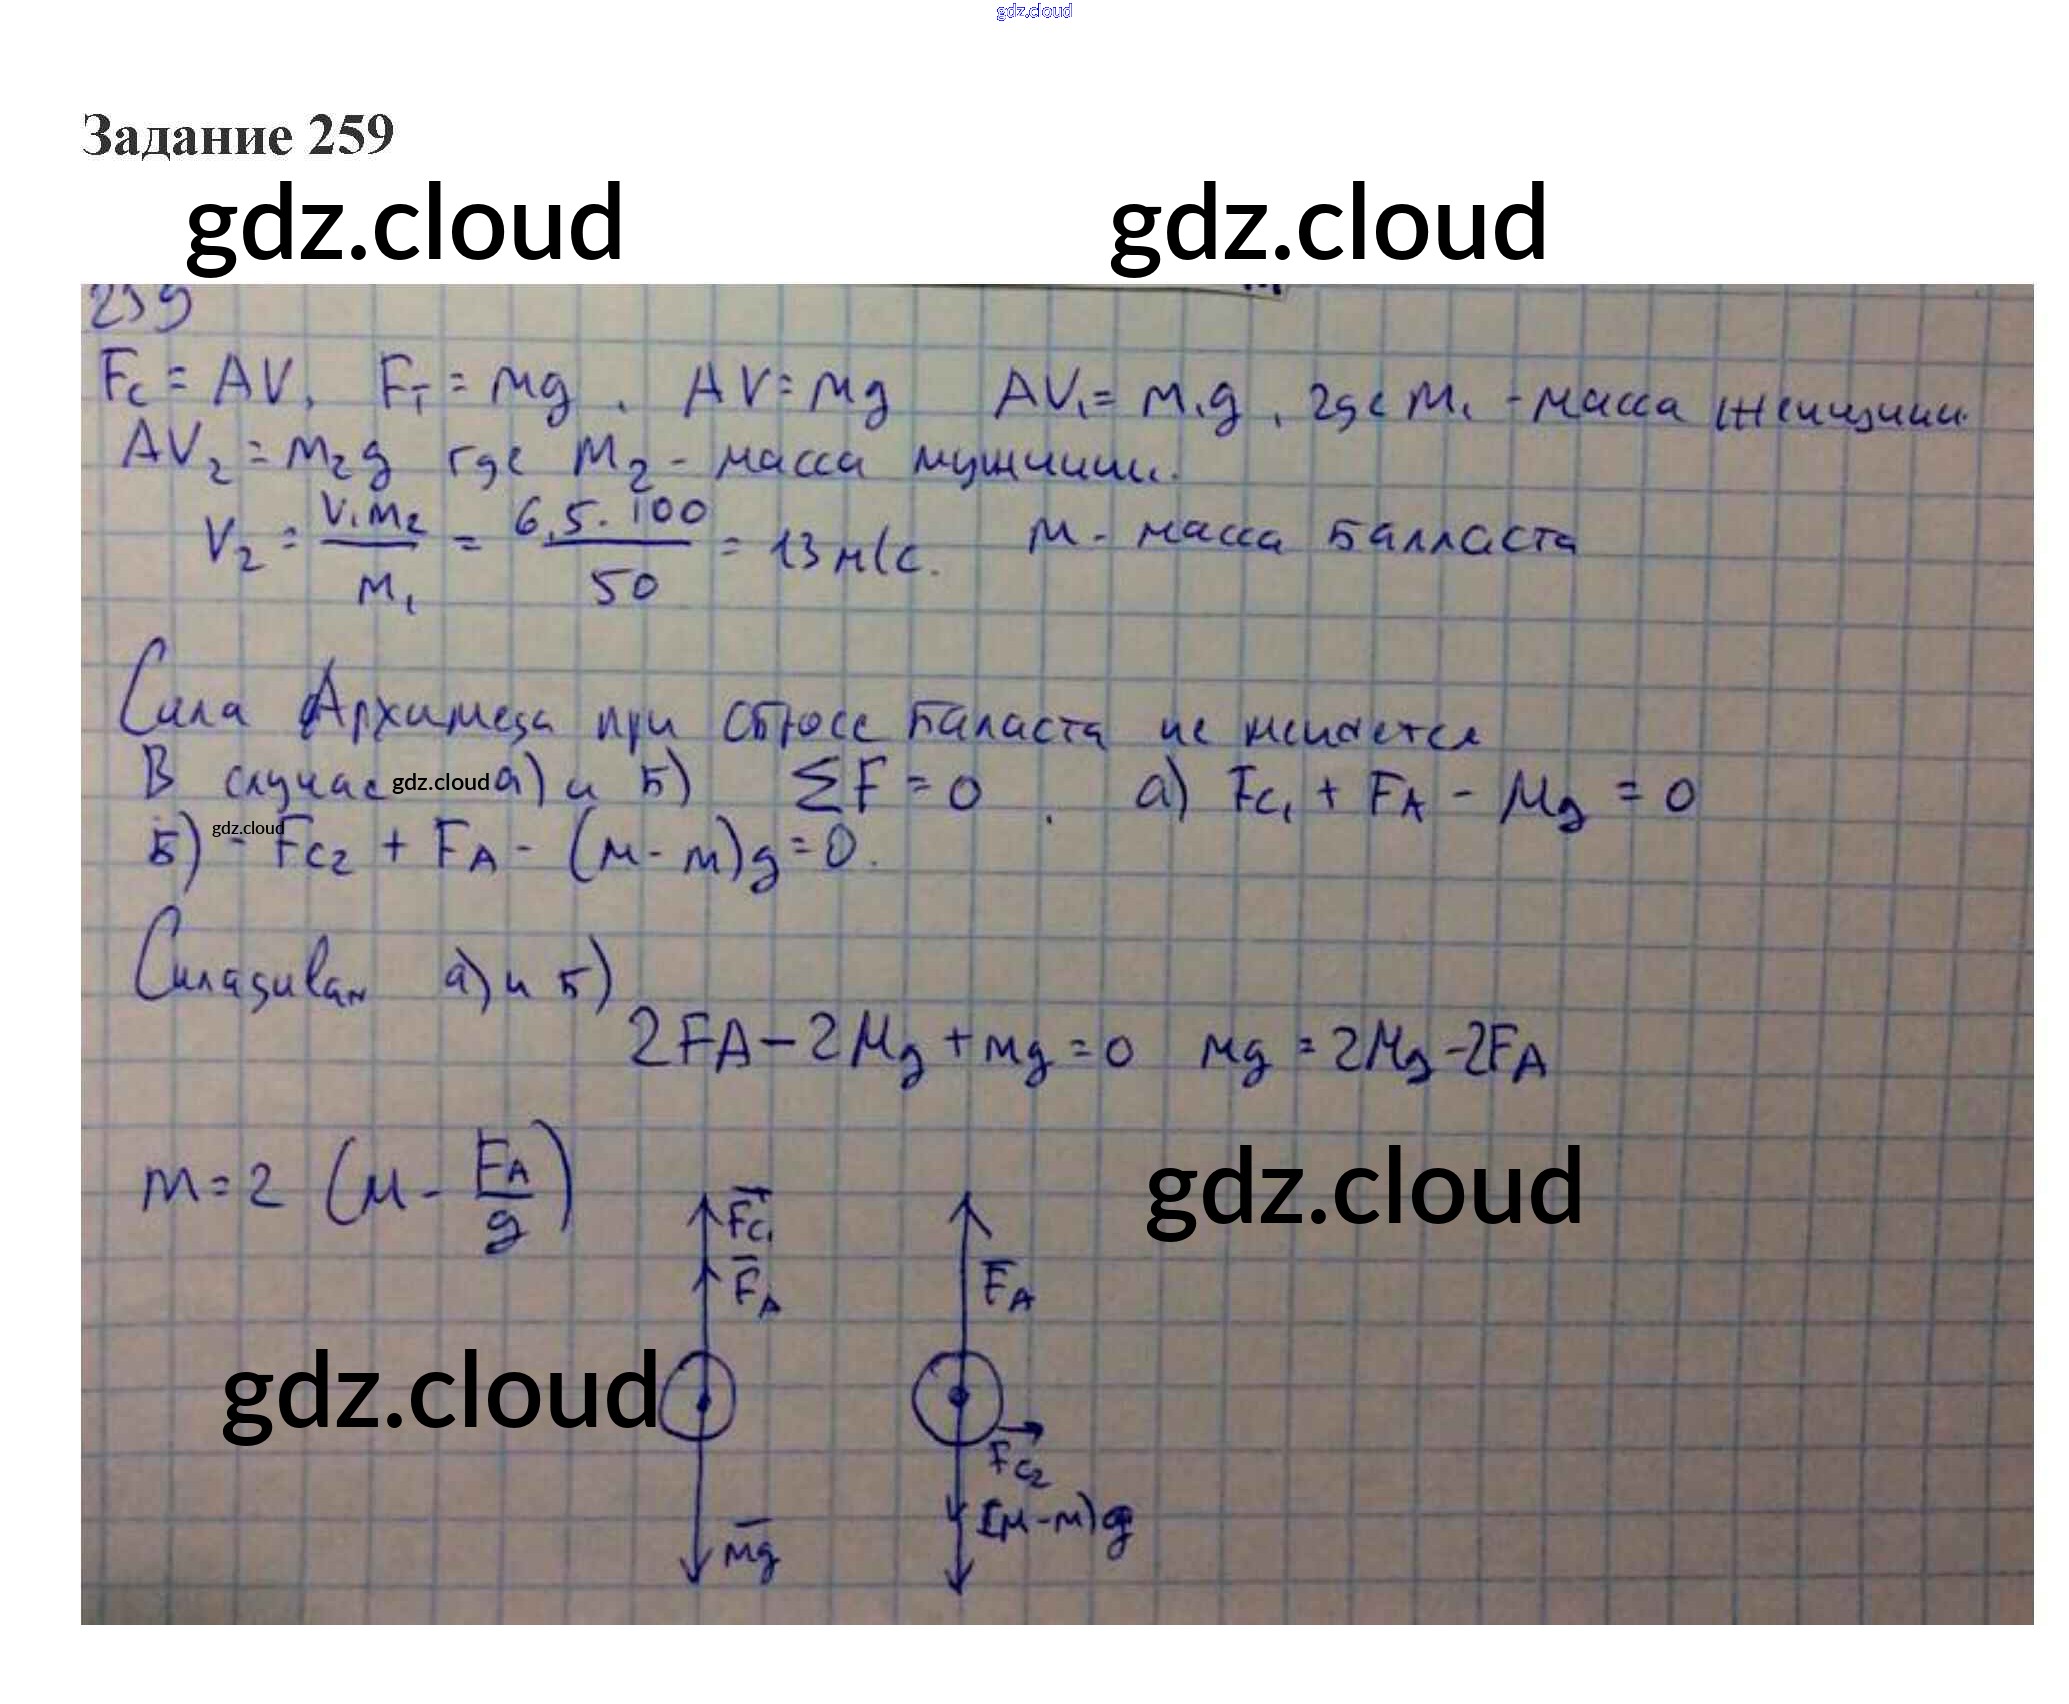 gdz.cloud
Задание 259
gdz.cloud gdz.cloud
259
Fc = AV, Fт = mg. AV = mg AV₁ = m₁g, где m₁ - масса женщины.
AV₂ = m₂g где m₂ - масса мужчины.
V₂ = V₁m₂ / m₁ = 6,5 · 100 / 50 = 13 м/с. m - масса балласта
Сила Архимеда при сбросе баласта не меняется
В случае gdz.cloud а) и б) ΣF = 0. а) Fc₁ + FA - Mg = 0
б) gdz.cloud - Fc₂ + FA - (M - m)g = 0.
Складивая а) и б)
2FA - 2Mg + mg = 0 mg = 2Mg - 2FA
m = 2 (M - FA / g)
gdz.cloud
Fc₁
FA FA
gdz.cloud
Fc₂
(M-m)g
Mg